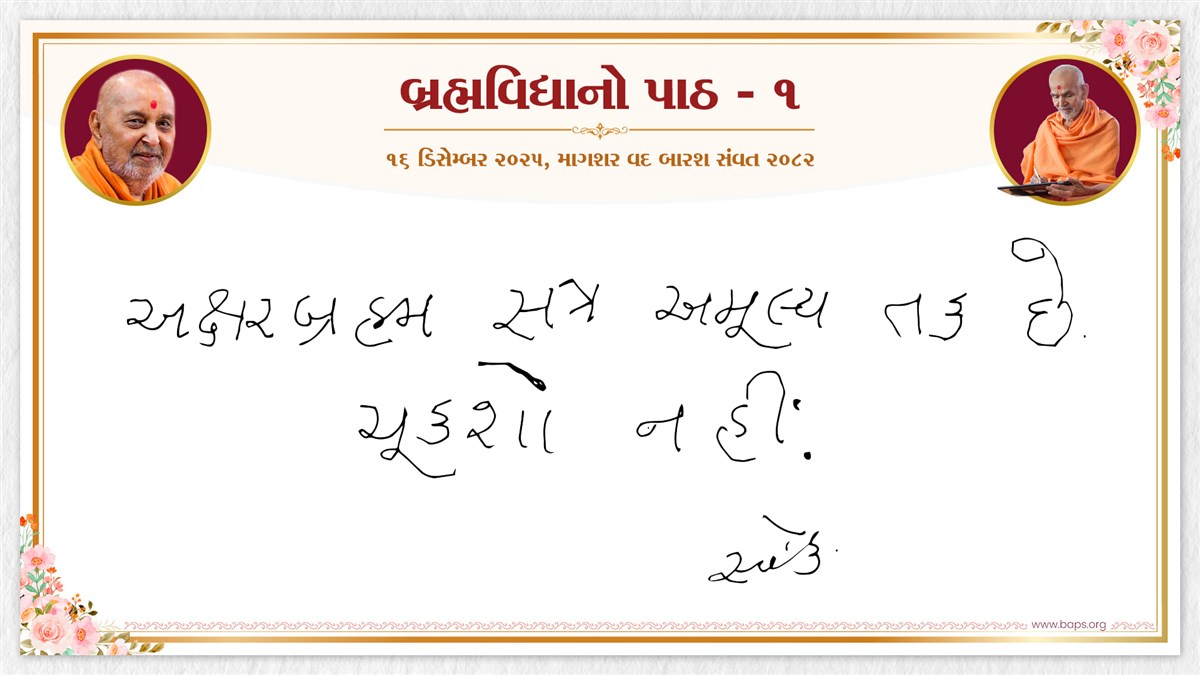 બ્રહ્મવિદ્યાનો પાઠ - ૧
૧૬ ડિસેમ્બર ૨૦૨૫, માગશર વદ બારશ સંવત ૨૦૮૨
અક્ષરબ્રહમ સત્ર અમૂલ્ય તક છે.
ચૂકશો નહીં.
www.baps.org